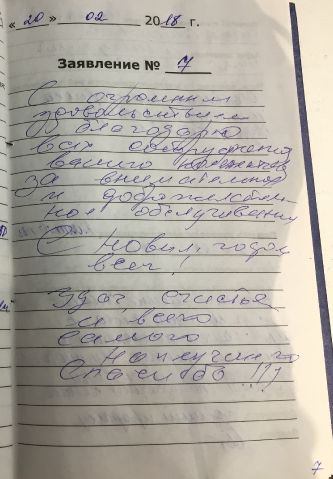 « 20 » 02 2018 г.
Заявление № 7
С огромным
удовольствием
благодарю
всех сотрудников
вашего
за внимательное
и доброжелатель-
ное обслуживание
С Новым годом
всех!
Удач, счастья
и всего
самого
наилучшего
Спасибо!!!
7